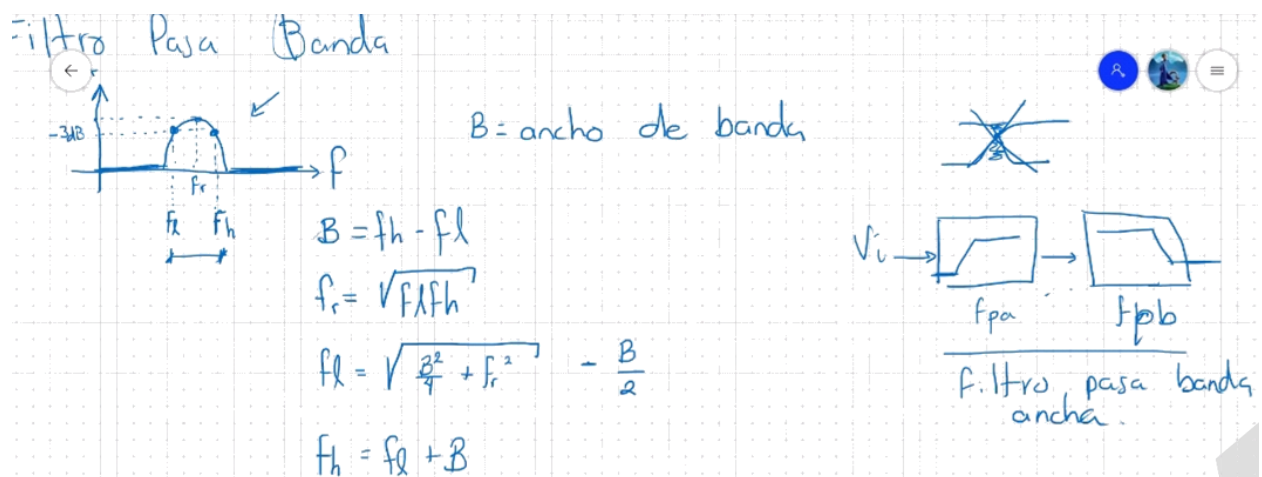 Filtro Pasa Banda
-3dB
f
fr
fl fh
B = ancho de banda
B = fh - fl
fr = √(fl fh)
fl = √(B²/4 + fr²) - B/2
fh = fl + B
Vi
fpa fpb
Filtro pasa banda
ancha.